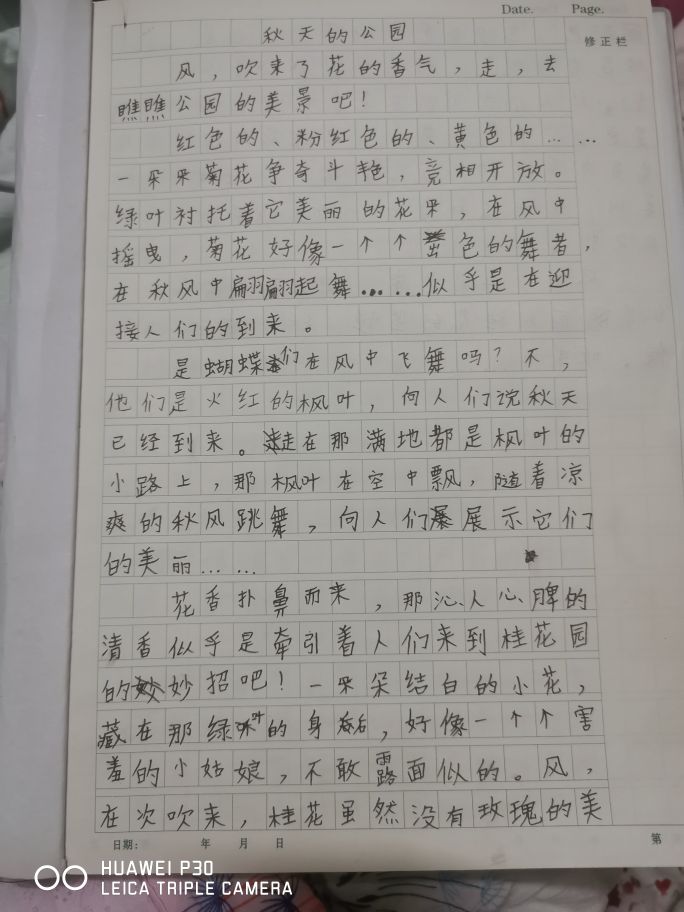 Date. Page.
秋天的公园
修正栏
风，吹来了花的香气，走，去
瞧瞧公园的美景吧！
红色的、粉红色的、黄色的……
一朵朵菊花争奇斗艳，竞相开放。
绿叶衬托着它美丽的花朵，在风中
摇曳，菊花好像一个个色的舞者，
在秋风中翩翩起舞……似乎是在迎
接人们的到来。
是蝴蝶们在风中飞舞吗？不，
他们是火红的枫叶，向人们说秋天
已经到来。走在那满地都是枫叶的
小路上，那枫叶在空中飘，随着凉
爽的秋风跳舞，向人们展示它们
的美丽……
花香扑鼻而来，那沁人心脾的
清香似乎是牵引着人们来到桂花园
的妙招吧！一朵朵结白的小花，
藏在那绿叶的身后，好像一个个害
羞的小姑娘，不敢露面似的。风，
在次吹来，桂花虽然没有玫瑰的美
日期： 年 月 日 第
HUAWEI P30
LEICA TRIPLE CAMERA